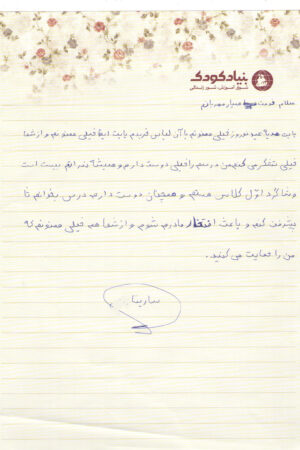 بنیاد کودک
شوق آموزش، شور زندگی
سلام خدمت همیار مهربانم
بابت هدیه عید نوروز خیلی ممنونم با آن لباس خریدم بابت اینا خیلی ممنونم و از شما
خیلی تشکر می کنم من درسم را خیلی دوست دارم و همیشه نمراتم بیست است
و شاگرد اول کلاس هستم و همچنان دوست دارم درس بخوانم تا
پیشرفت کنم و باعث افتخار مادرم شوم و از شما هم خیلی ممنونم که
من را حمایت می کنید.
سارینا